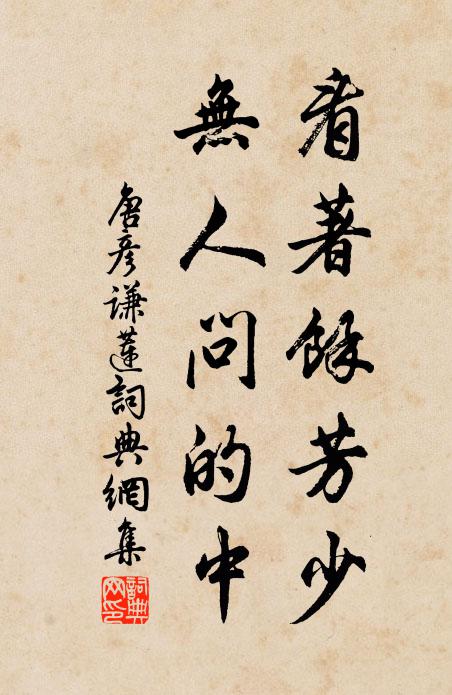 看著餘芳少
無人問的中
唐彥謙蓮詞典網集
詞典
网印